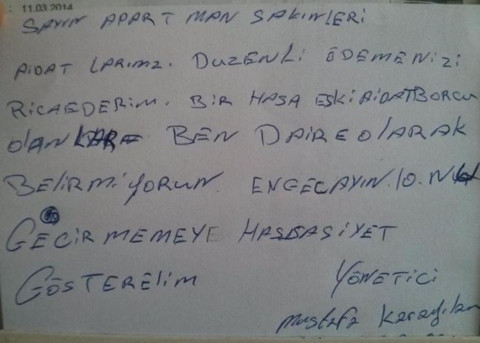 11.03.2014
SAYIN APARTMAN SAKINLERI
AIDAT LARIMZI DUZENLI ÖDEMENIZI
RICAEDERIM. BIR HASA ESKI AIDATBORCU
OLAN BEN DAIRE OLARAK
BELIRMIYORUN ENGEC AYIN 10.N
GECIRMEMEYE HASSASIYET
GÖSTERELIM YÖNETICI
Mustafa Karayılan